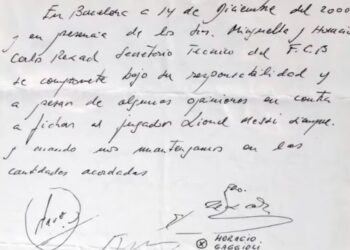 En Barcelona a 14 de Diciembre del 2000
y en presencia de los Srs. Minguella y Horacio
Carlo Rexach Secretario Tecnico del F.C.B
se compromete bajo su responsabilidad y
a pesar de algunas opiniones en contra
a fichar al jugador Lionel Messi siempre
y cuando nos mantengamos en las
cantidades acordadas
HORACIO
GAGGIOLI